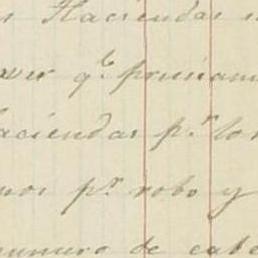 Haciendas
ver qe
haciendas pr lo
nos pr robo y
numero de cabe